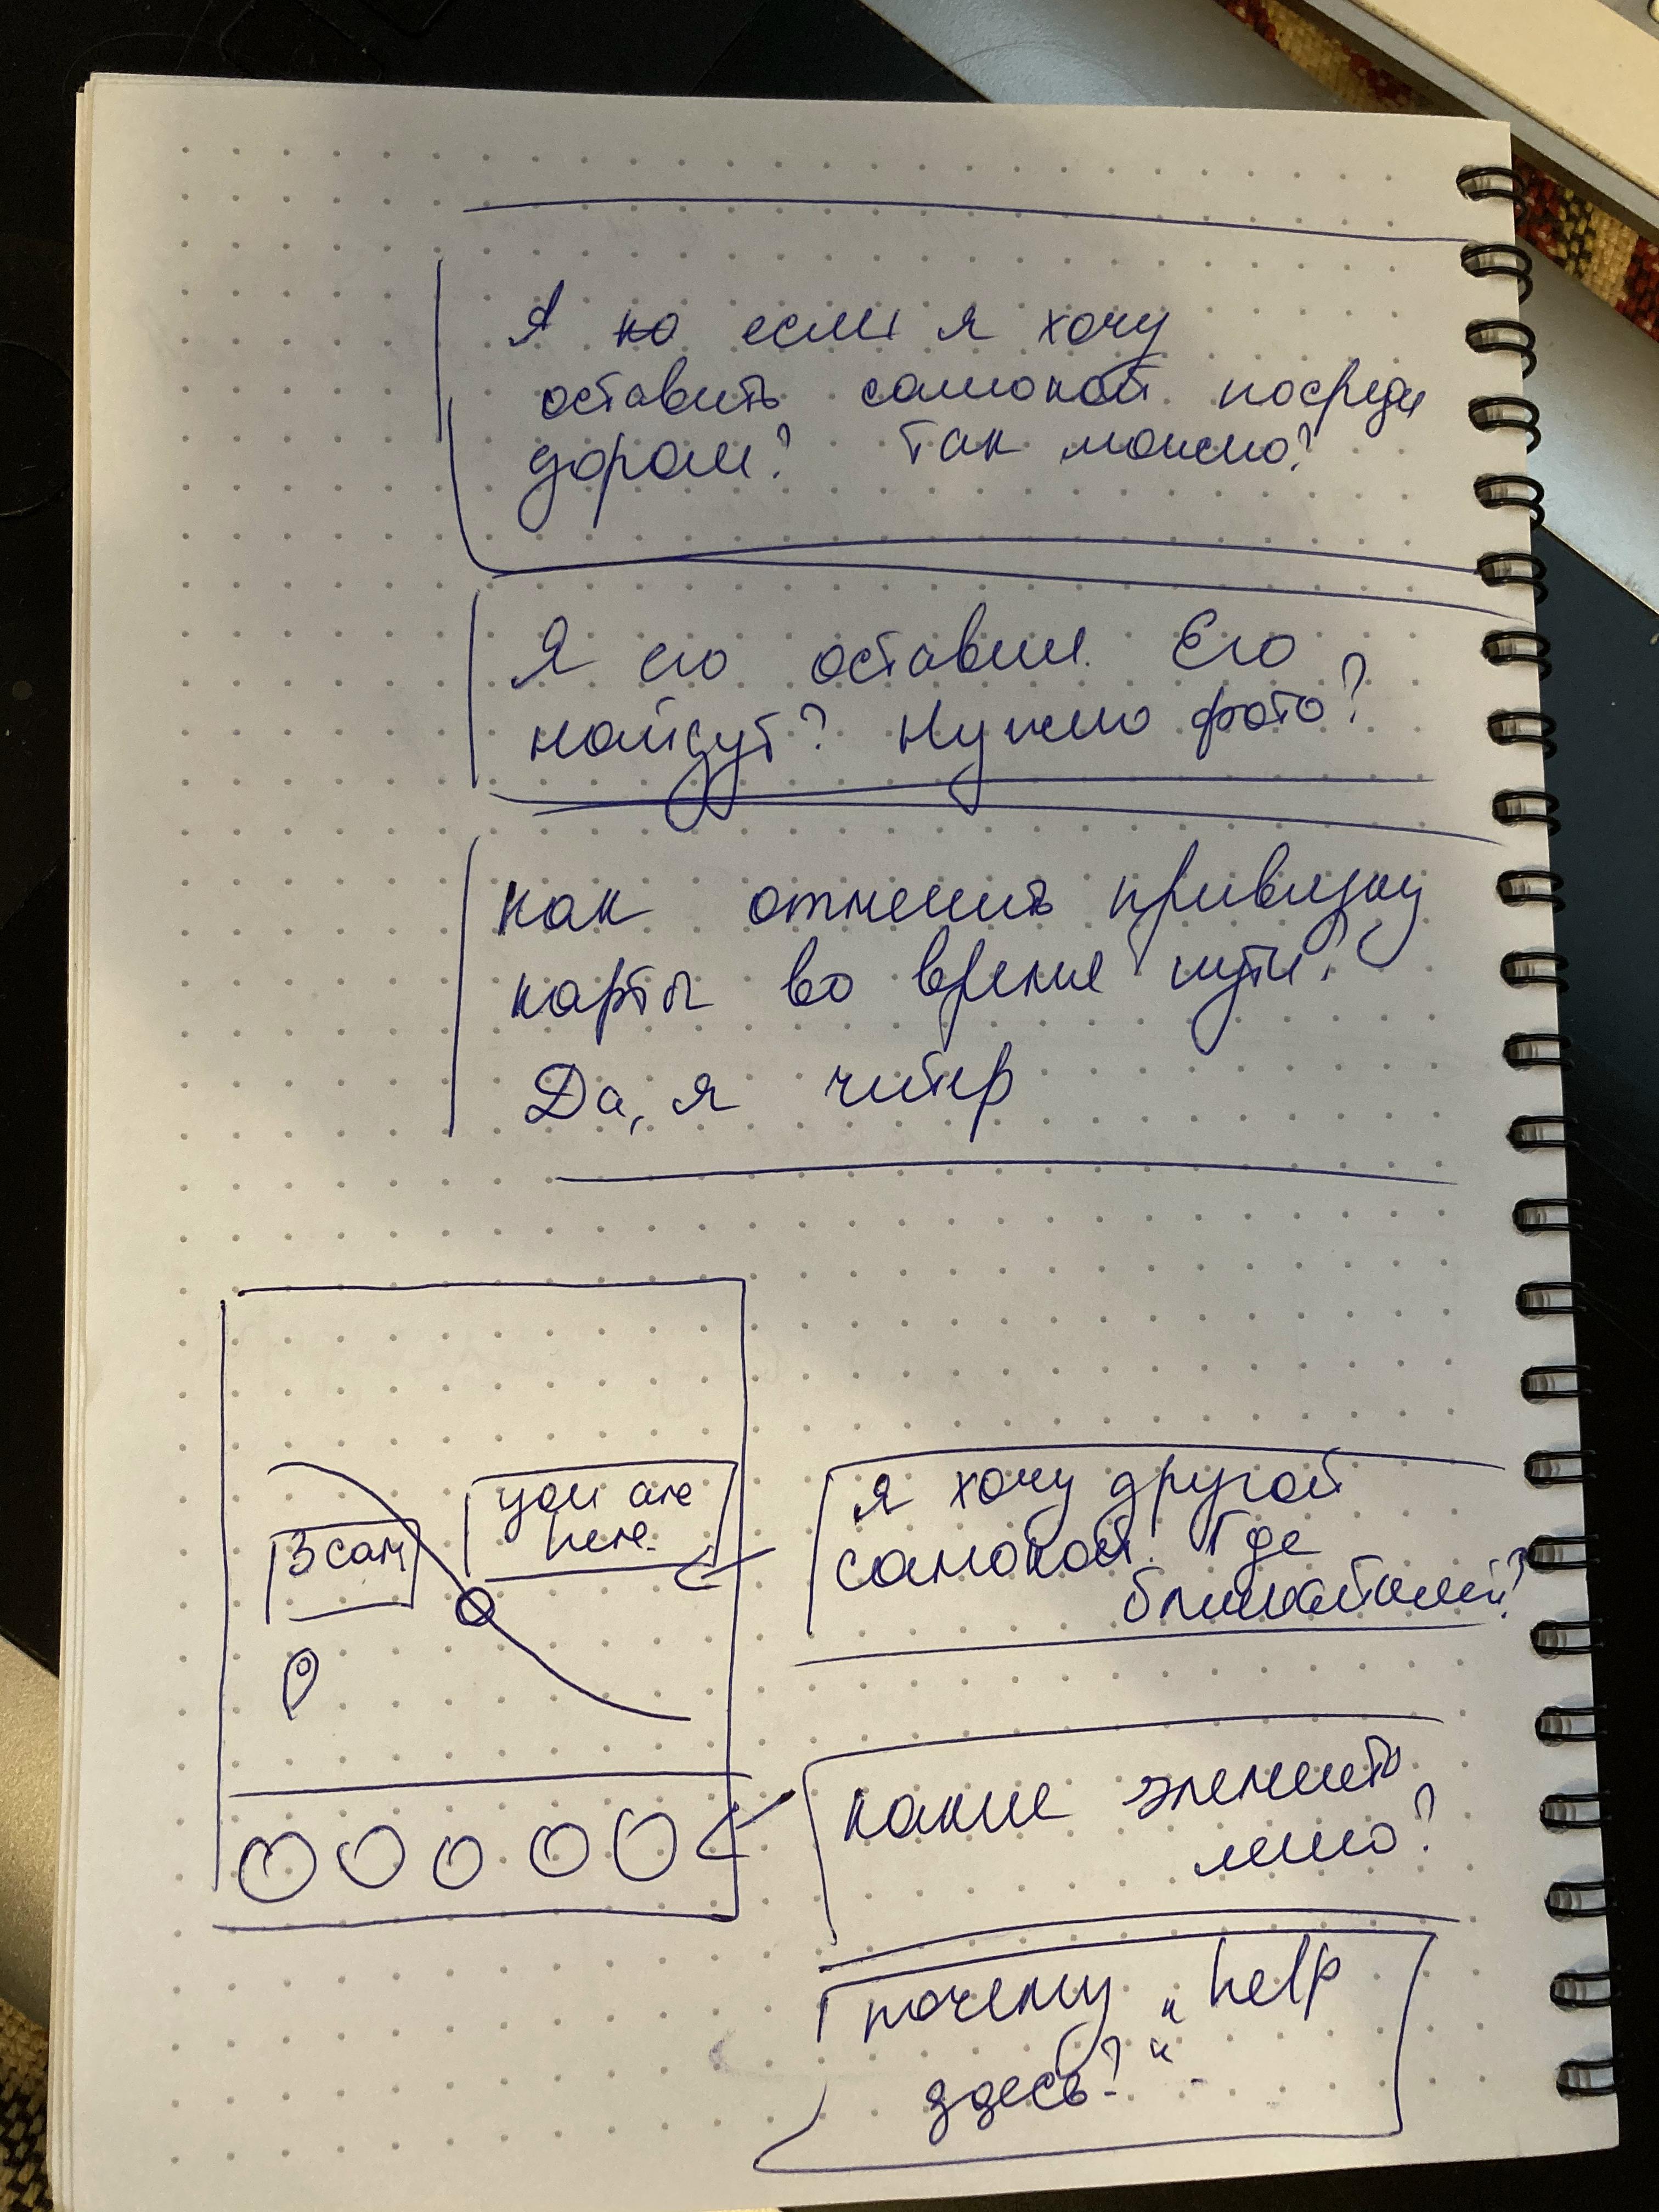 А но если я хочу
оставить самокат посреди
дороги? Так можно?
Я его оставил. Его
найдут? Нужно фото?
как отменить привязку
карты во время пути?
Да, я читер
you are
here
3 сам
Я хочу другой
самокат. Где
ближайший?
какие элементы
меню?
почему „help
здесь?“